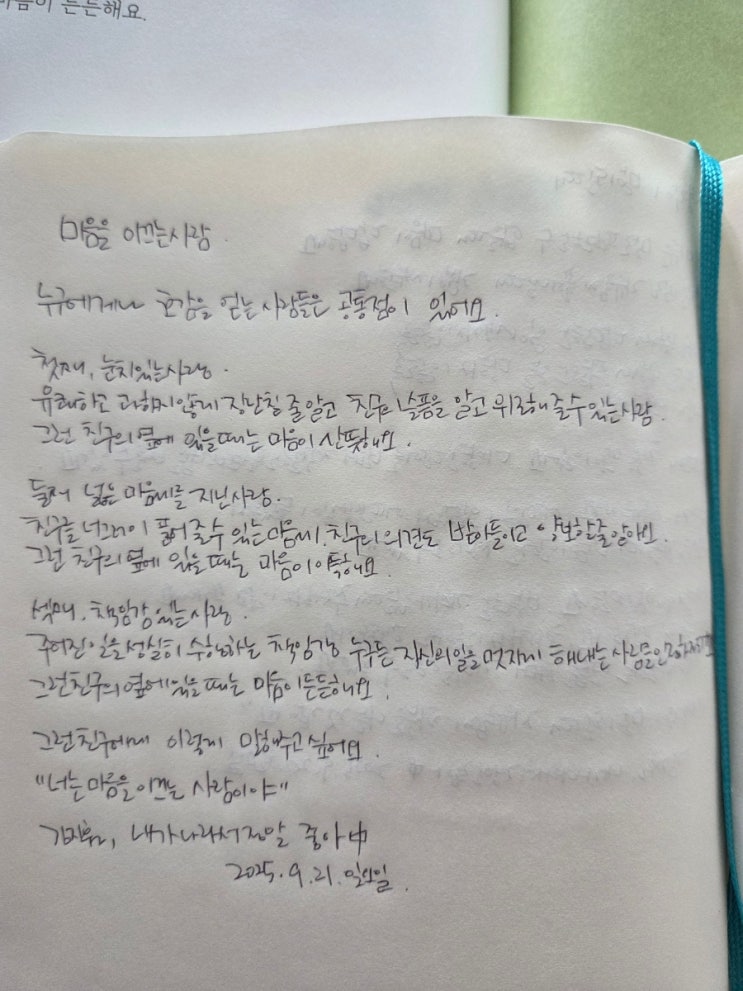 마음이 든든해요.
마음을 이끄는 사람.
누구에게나 호감을 얻는 사람들은 공통점이 있어요.
첫째, 눈치있는 사람.
유쾌하고 과하지 않게 장난칠 줄 알고 친구의 슬픔을 알고 위로해 줄 수 있는 사람.
그런 친구의 옆에 있을 때는 마음이 산뜻해요.
둘째 넓은 마음씨를 지닌 사람.
친구를 너그러이 풀어줄 수 있는 마음씨. 친구의 의견도 받아들이고 양보할 줄 알아요.
그런 친구의 옆에 있을 때는 마음이 어톡해요.
셋째, 책임감 있는 사람.
주어진 일을 성실히 수행하는 책임감 누구든 자신의 일을 멋지게 해내는 사람을 인정하지요
그런 친구의 옆에 있을 때는 마음이 든든해요.
그런 친구에게 이렇게 말해주고 싶어요.
"너는 마음을 이끄는 사람이야"
내가 나라서 정말 좋아 中
2025. 9. 21. 일요일.